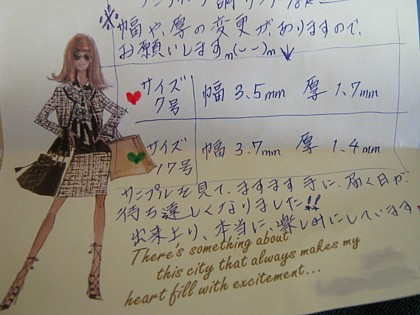 ※幅や厚の変更がありますので、
お願いしますm(--)m
サイズ 7号 幅 3.5mm 厚 1.7mm
サイズ 17号 幅 3.7mm 厚 1.4mm
サンプルを見て、ますます手に、届く日が
待ち遠しくなりました!!
出来上り、本当に、楽しみにしています
There's something about
this city that always makes my
heart fill with excitement...